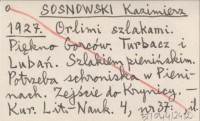 SOSNOWSKI Kazimierz
1927. Orlimi szlakami.
Piękno Gorców. Turbacz i
Lubań. Szlakiem pienińskim.
Potrzeba schroniska w Pieni-
nach. Zejście do Krynicy. —
Kur. Lit.-Nauk. 4, nr 37: il.